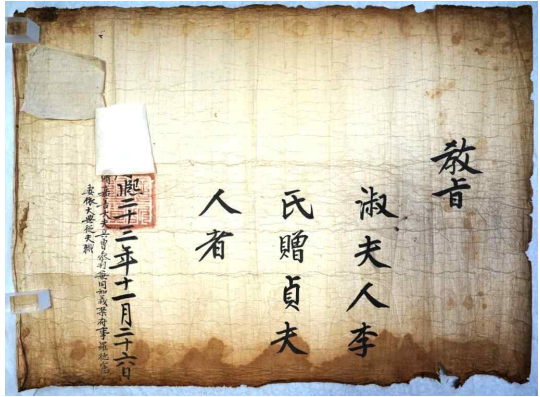 敎旨
淑夫人李
氏贈貞夫
人者
熙二十三年十一月二十六日
嘉善大夫兵曹參判兼同知義禁府事羅
妻依大典從夫職